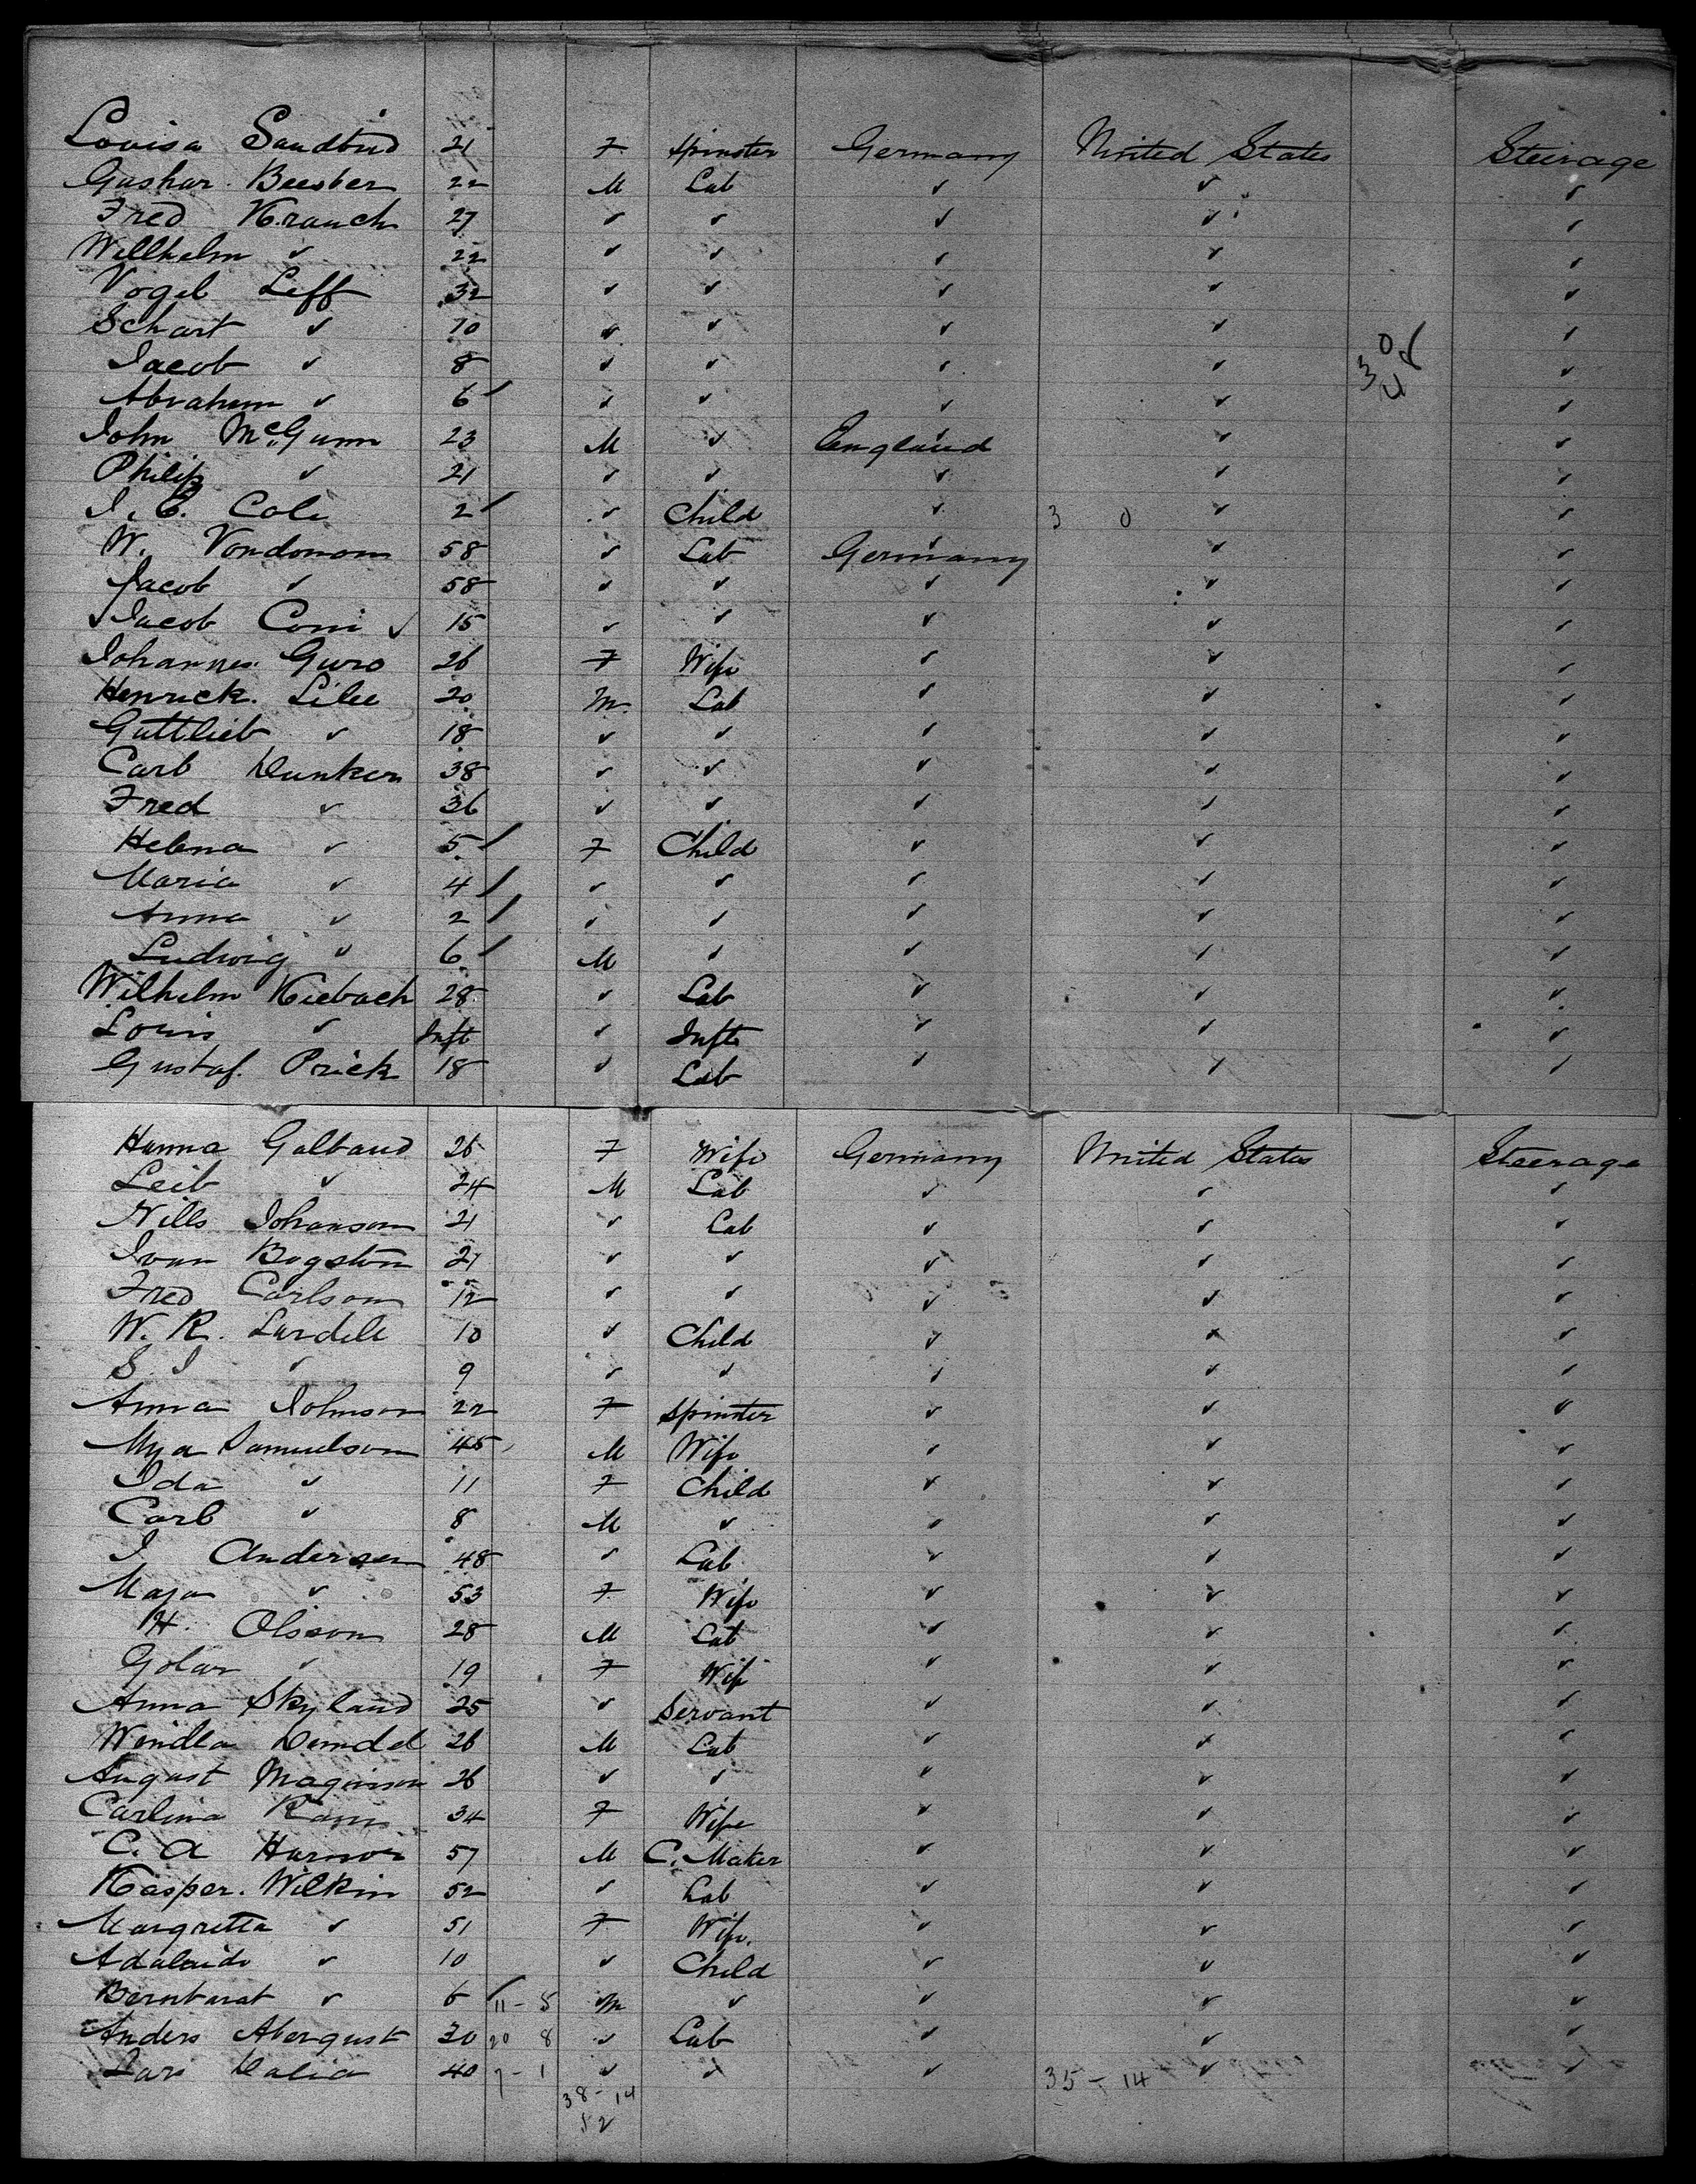 Louisa Sandbud 21 F Spinster Germany United States Steerage
Gashar Beesber 22 M Lab ✓ ✓ ✓
Fred Krauch 27 ✓ ✓ ✓ ✓ ✓
Willhelm ✓ 22 ✓ ✓ ✓ ✓ ✓
Vogel Leff 32 ✓ ✓ ✓ ✓ ✓
Schart ✓ 10 ✓ ✓ ✓ ✓ ✓
Jacob ✓ 8 ✓ ✓ ✓ ✓ ✓
Abraham ✓ 6 ✓ ✓ ✓ ✓ ✓
John McGunn 23 M ✓ England ✓ ✓
Philip ✓ 21 ✓ ✓ ✓ ✓ ✓
J. E. Cole 2 ✓ Child ✓ 3 0 ✓ ✓
W. Vondonom 58 ✓ Lab Germany ✓ ✓
Jacob ✓ 58 ✓ ✓ ✓ ✓ ✓
✓ Jacob Comi ✓ 15 ✓ ✓ ✓ ✓ ✓
Johannes Guro 26 F Wife ✓ ✓ ✓
Henrick Lilee 20 M. Lab ✓ ✓ ✓
Guttlieb ✓ 18 ✓ ✓ ✓ ✓ ✓
Carl Dunker 38 ✓ ✓ ✓ ✓ ✓
Fred ✓ 36 ✓ ✓ ✓ ✓ ✓
Helena ✓ 5 F Child ✓ ✓ ✓
Maria ✓ 4 ✓ ✓ ✓ ✓ ✓
Anna ✓ 2 ✓ ✓ ✓ ✓ ✓
Ludwig ✓ 6 M ✓ ✓ ✓ ✓
Wilhelm Kiebach 28 ✓ Lab ✓ ✓ ✓
Louis ✓ Inft ✓ Inft ✓ ✓ ✓
Gustaf. Prick 18 ✓ Lab ✓ ✓ ✓
Hanna Galbaud 26 F Wife Germany United States Steerage
Leib ✓ 24 M Lab ✓ ✓ ✓
Nills Johanson 21 ✓ Lab ✓ ✓ ✓
Ivan Bogston 21 ✓ ✓ ✓ ✓ ✓
Fred Carlson 12 ✓ ✓ ✓ ✓ ✓
W. R. Lardell 10 ✓ Child ✓ ✓ ✓
S. J ✓ 9 ✓ ✓ ✓ ✓ ✓
Anna Johnson 22 F Spinster ✓ ✓ ✓
Mya Samuelson 45 M Wife ✓ ✓ ✓
Ida ✓ 11 F Child ✓ ✓ ✓
Carl ✓ 8 M ✓ ✓ ✓ ✓
J Andersen 48 ✓ Lab ✓ ✓ ✓
Maja ✓ 53 F Wife ✓ ✓ ✓
H. Olsson 28 M Lab ✓ ✓ ✓
Golar ✓ 19 F Wife ✓ ✓ ✓
Anna Skyland 25 ✓ Servant ✓ ✓ ✓
Wendla Demdel 26 M Lab ✓ ✓ ✓
August Maginson 26 ✓ ✓ ✓ ✓ ✓
Carlina Ram 34 F Wife ✓ ✓ ✓
C. A 57 M C. Maker ✓ ✓ ✓
Kasper. Wilkin 52 ✓ Lab ✓ ✓ ✓
Margretta ✓ 51 F Wife. ✓ ✓ ✓
Adalaide ✓ 10 ✓ Child ✓ ✓ ✓
Berntarat ✓ 6 11 - 5 M ✓ ✓ ✓ ✓
Anders Aberqust 30 20 8 ✓ Lab ✓ ✓ ✓
Lars Dalia 40 7 - 1 ✓ ✓ ✓ 35 - 14 ✓ ✓
38 - 14
52